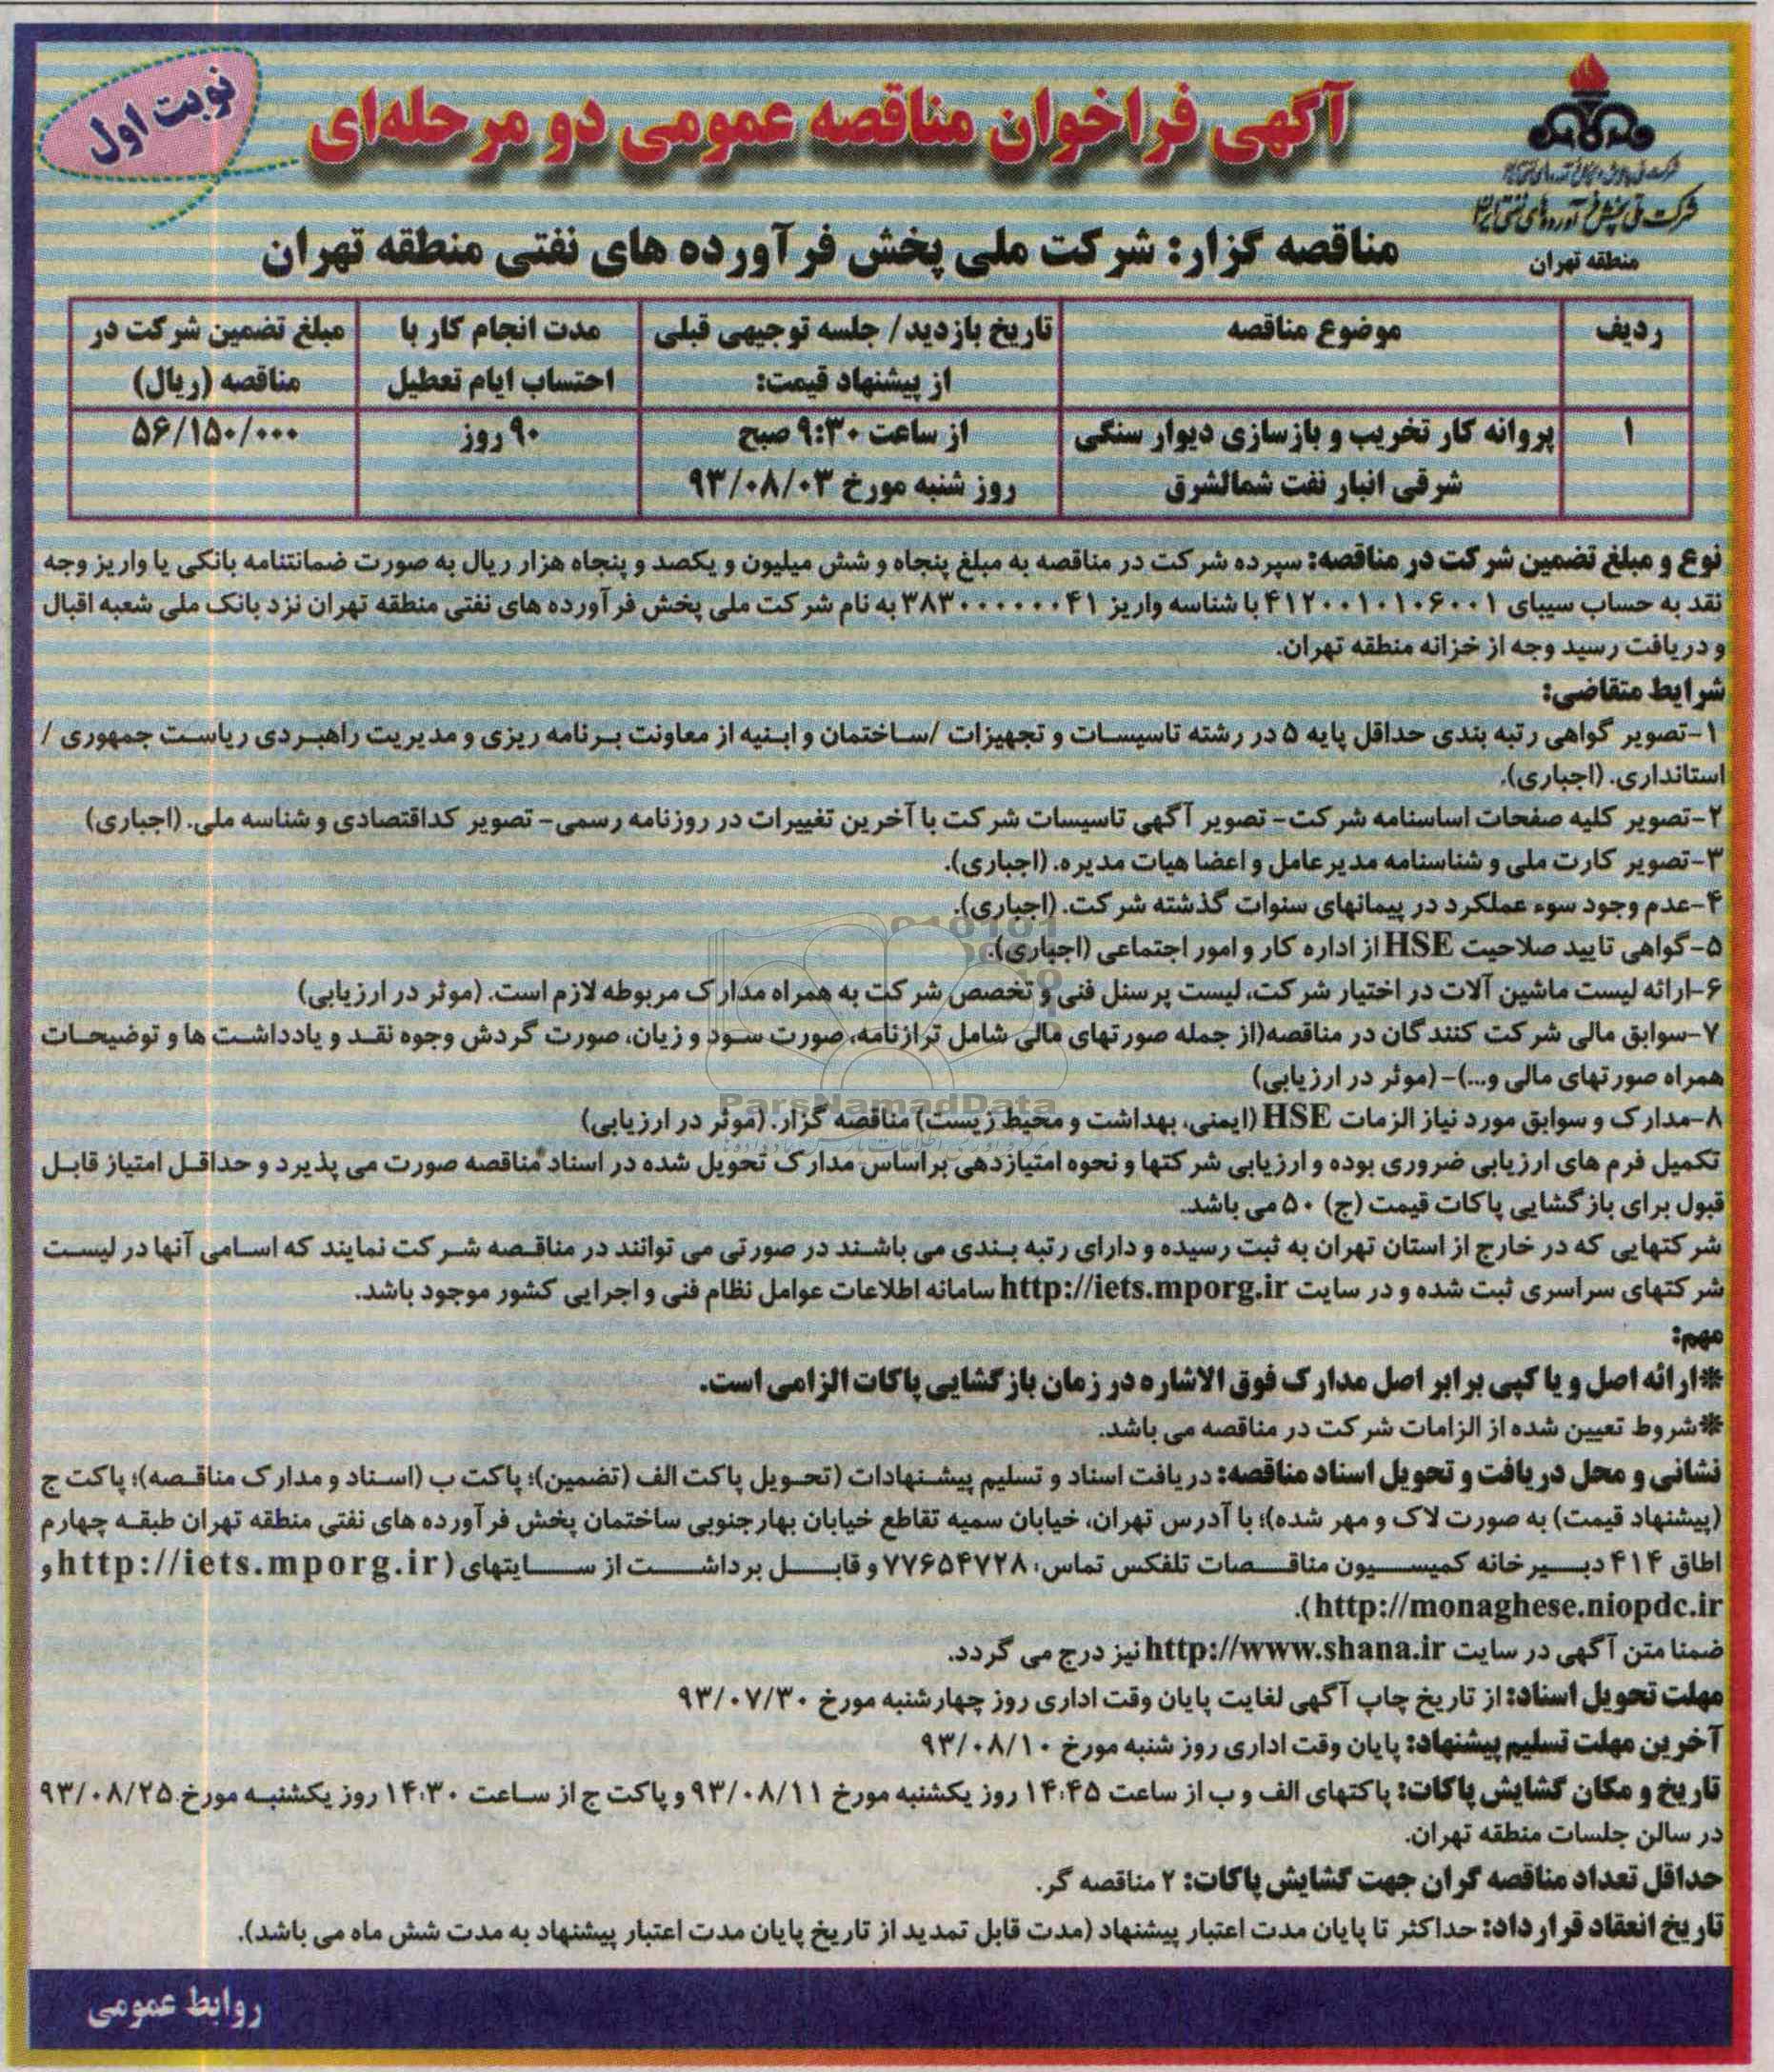 نوبت اول
آگهی فراخوان مناقصه عمومی دو مرحله‌ای
شرکت ملی پخش فرآورده های نفتی ایران
منطقه تهران
مناقصه گزار: شرکت ملی پخش فرآورده های نفتی منطقه تهران
ردیف | موضوع مناقصه | تاریخ بازدید/ جلسه توجیهی قبلی از پیشنهاد قیمت: | مدت انجام کار با احتساب ایام تعطیل | مبلغ تضمین شرکت در مناقصه (ریال)
۱ | پروانه کار تخریب و بازسازی دیوار سنگی شرقی انبار نفت شمالشرق | از ساعت ۹:۳۰ صبح روز شنبه مورخ ۹۳/۰۸/۰۳ | ۹۰ روز | ۵۶/۱۵۰/۰۰۰
نوع و مبلغ تضمین شرکت در مناقصه: سپرده شرکت در مناقصه به مبلغ پنجاه و شش میلیون و یکصد و پنجاه هزار ریال به صورت ضمانتنامه بانکی یا واریز وجه
نقد به حساب سیبای ۴۱۲۰۰۱۰۱۰۶۰۰۱ با شناسه واریز ۳۸۳۰۰۰۰۰۰۴۱ به نام شرکت ملی پخش فرآورده های نفتی منطقه تهران نزد بانک ملی شعبه اقبال
و دریافت رسید وجه از خزانه منطقه تهران.
شرایط متقاضی:
۱-تصویر گواهی رتبه بندی حداقل پایه ۵ در رشته تاسیسات و تجهیزات /ساختمان و ابنیه از معاونت برنامه ریزی و مدیریت راهبردی ریاست جمهوری /
استانداری. (اجباری).
۲-تصویر کلیه صفحات اساسنامه شرکت- تصویر آگهی تاسیسات شرکت با آخرین تغییرات در روزنامه رسمی- تصویر کداقتصادی و شناسه ملی. (اجباری)
۳-تصویر کارت ملی و شناسنامه مدیرعامل و اعضا هیات مدیره. (اجباری).
۴-عدم وجود سوء عملکرد در پیمانهای سنوات گذشته شرکت. (اجباری).
۵-گواهی تایید صلاحیت HSE از اداره کار و امور اجتماعی (اجباری).
۶-ارائه لیست ماشین آلات در اختیار شرکت، لیست پرسنل فنی و تخصص شرکت به همراه مدارک مربوطه لازم است. (موثر در ارزیابی)
۷-سوابق مالی شرکت کنندگان در مناقصه(از جمله صورتهای مالی شامل ترازنامه، صورت سود و زیان، صورت گردش وجوه نقد و یادداشت ها و توضیحات
همراه صورتهای مالی و...)-(موثر در ارزیابی)
ParsNamadData
۸-مدارک و سوابق مورد نیاز الزمات HSE (ایمنی، بهداشت و محیط زیست) مناقصه گزار. (موثر در ارزیابی)
تکمیل فرم های ارزیابی ضروری بوده و ارزیابی شرکتها و نحوه امتیازدهی براساس مدارک تحویل شده در اسناد مناقصه صورت می پذیرد و حداقل امتیاز قابل
قبول برای بازگشایی پاکات قیمت (ج) ۵۰ می باشد.
شرکتهایی که در خارج از استان تهران به ثبت رسیده و دارای رتبه بندی می باشند در صورتی می توانند در مناقصه شرکت نمایند که اسامی آنها در لیست
شرکتهای سراسری ثبت شده و در سایت http://iets.mporg.ir سامانه اطلاعات عوامل نظام فنی و اجرایی کشور موجود باشد.
مهم:
*ارائه اصل و یا کپی برابر اصل مدارک فوق الاشاره در زمان بازگشایی پاکات الزامی است.
*شروط تعیین شده از الزامات شرکت در مناقصه می باشد.
نشانی و محل دریافت و تحویل اسناد مناقصه: دریافت اسناد و تسلیم پیشنهادات (تحویل پاکت الف (تضمین)؛ پاکت ب (اسناد و مدارک مناقصه)؛ پاکت ج
(پیشنهاد قیمت) به صورت لاک و مهر شده)؛ با آدرس تهران، خیابان سمیه تقاطع خیابان بهارجنوبی ساختمان پخش فرآورده های نفتی منطقه تهران طبقه چهارم
اطاق ۴۱۴ دبیرخانه کمیسیون مناقصات تلفکس تماس: ۷۷۶۵۴۷۲۸ و قابل برداشت از سایتهای (http://iets.mporg.ir و
http://monaghese.niopdc.ir).
ضمنا متن آگهی در سایت http://www.shana.ir نیز درج می گردد.
مهلت تحویل اسناد: از تاریخ چاپ آگهی لغایت پایان وقت اداری روز چهارشنبه مورخ ۹۳/۰۷/۳۰
آخرین مهلت تسلیم پیشنهاد: پایان وقت اداری روز شنبه مورخ ۹۳/۰۸/۱۰
تاریخ و مکان گشایش پاکات: پاکتهای الف و ب از ساعت ۱۴:۴۵ روز یکشنبه مورخ ۹۳/۰۸/۱۱ و پاکت ج از ساعت ۱۴:۳۰ روز یکشنبه مورخ ۹۳/۰۸/۲۵
در سالن جلسات منطقه تهران.
حداقل تعداد مناقصه گران جهت گشایش پاکات: ۲ مناقصه گر.
تاریخ انعقاد قرارداد: حداکثر تا پایان مدت اعتبار پیشنهاد (مدت قابل تمدید از تاریخ پایان مدت اعتبار پیشنهاد به مدت شش ماه می باشد).
روابط عمومی